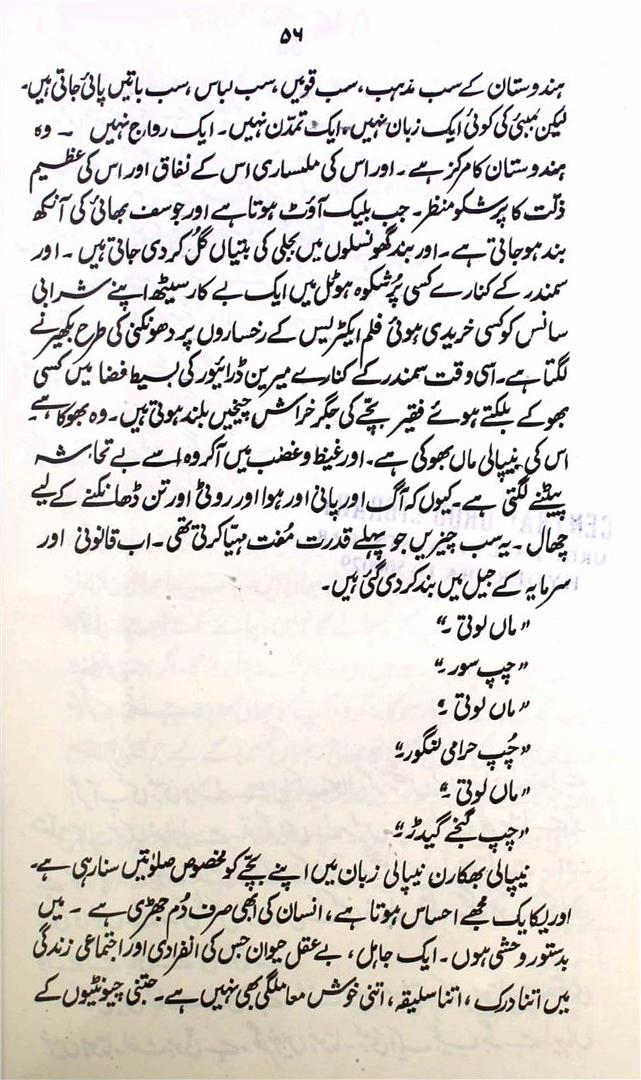 ۵۶
ہندوستان کے سب مذہب، سب قومیں، سب لباس، سب باتیں پائی جاتی ہیں۔
لیکن بمبئی کی کوئی ایک زبان نہیں۔ ایک تمدّن نہیں۔ ایک رواج نہیں ۔ وہ
ہندوستان کا مرکز ہے ۔ اور اس کی ملنساری اس کے نفاق اور اس کی عظیم
ذلّت کا پُر شکوہ منظر۔ جب بلیک آؤٹ ہوتا ہے اور جوسف بھائی کی آنکھ
بند ہو جاتی ہے ۔ اور بند گھونسلوں میں بجلی کی بتیاں گُل کر دی جاتی ہیں ۔ اور
سمندر کے کنارے کسی پُر شکوہ ہوٹل میں ایک بے کار سیٹھ اپنے شرابی
سانس کو کسی خریدی ہوئی فلم ایکٹریس کے رخساروں پر دھونکنی کی طرح بکھیرنے
لگتا ہے۔ اسی وقت سمندر کے کنارے میرین ڈرائیور کی بسیط فضا میں کسی
بھوکے بلکتے ہوئے فقیر بچّے کی جگر خراش چیخیں بلند ہوتی ہیں۔ وہ بھوکا ہے۔
اس کی نیپالی ماں بھوکی ہے ۔ اور غیظ و غضب میں آکر وہ اسے بے تحاشہ
پیٹنے لگتی ہے ۔ کیوں کہ آگ اور پانی اور ہوا اور روٹی اور تن ڈھانکنے کے لیے
چھال ۔ یہ سب چیزیں جو پہلے قدرت مُفت مہیا کرتی تھی ۔ اب قانونی اور
سرمایہ کے جیل میں بند کر دی گئی ہیں ۔
”ماں لوتی ۔“
”چپ سور ۔“
”ماں لوتی ۔“
”چُپ حرامی لنگور۔“
”ماں لوتی ۔“
”چپ گنجے گیدڑ ۔“
نیپالی بھکارن نیپالی زبان میں اپنے بچّے کو مخصوص صلوٰتیں سنا رہی ہے۔
اور یکایک مجھے احساس ہوتا ہے ، انسان کی ابھی صرف دُم جھڑی ہے ۔ میں
بدستور وحشی ہوں ۔ ایک جاہل ، بے عقل حیوان جس کی انفرادی اور اجتماعی زندگی
میں اتنا درک ، اتنا سلیقہ ، اتنی خوش معاملگی بھی نہیں ہے ۔ جتنی چیونٹیوں کے